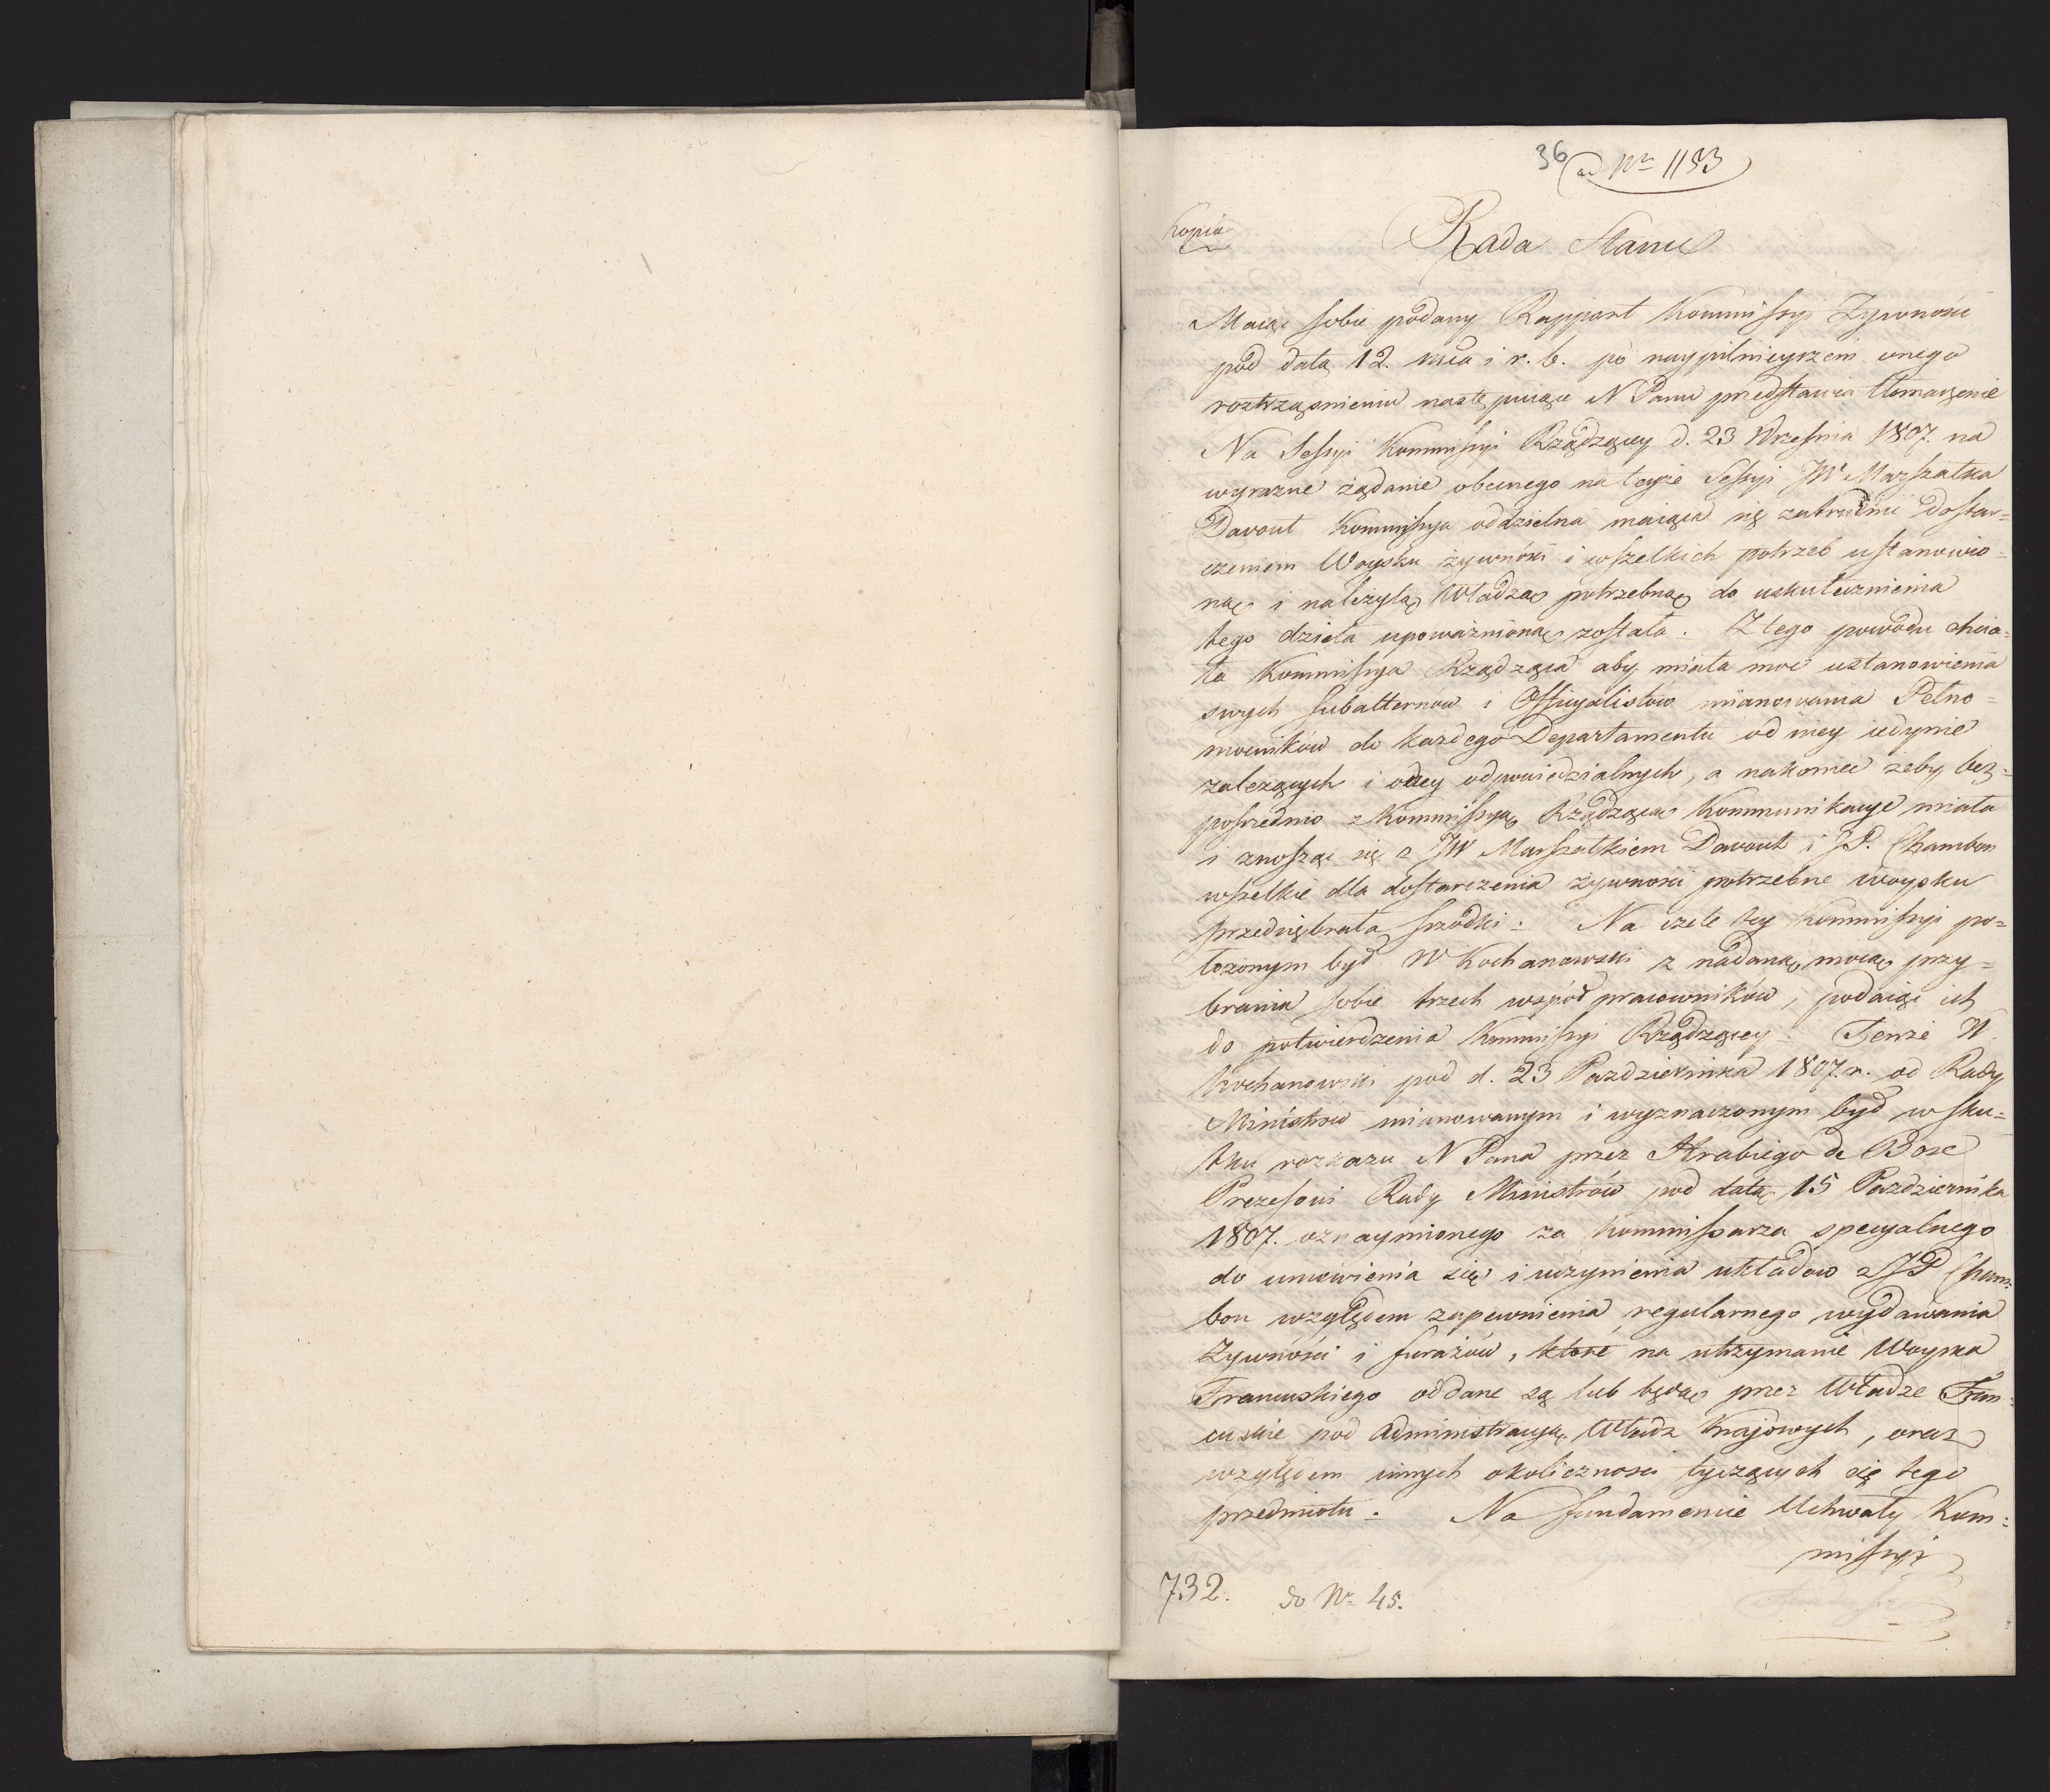 36 ad Nr 1133
Kopia
Rada Stanu
Maiąc sobie podany Rapport Kommissyi Żywności
pod datą 12. mca i r. b. po naypilnieyszem onego
roztrząśnieniu następuiące N Panu przedstawia tłomaczenie
Na Sessyi Kommissyi Rządzącey d. 23 Września 1807. na
wyrazne żądanie obecnego na teyże Sessyi JW Marszałka
Davout Kommissya oddzielna maiąca się zatrudnić dostar=
czeniem Woysku żywności i wszelkich potrzeb ustanowio=
ną i należytą Władzą potrzebną do uskutecznienia
tego dzieła upoważnioną została. Z tego powodu chcia=
ła Kommissya Rządząca aby miała moc ustanowienia
swych subalternów i Officyalistów mianowania Pełno=
mocników do każdego Departamentu od niey iedynie
zależących i odpowiedzialnych, a nakoniec żeby bez=
pośrednio z Kommissyą Rządzącą Kommunikacye miała
i znosząc się z JW Marszałkiem Davout i JP. Chambon
wszelkie dla dostarczenia żywności potrzebne woysku
przedsiębrała srzodki. Na czele tey Kommissyi po=
łożonym był W Kochanowski z nadaną mocą przy=
brania sobie trzech współpracowników, podaiąc ich
do potwierdzenia Kommissyi Rządzącey. Tenże W.
Kochanowski pod d. 23 Października 1807. r. od Rady
Ministrów mianowanym i wyznaczonym był w sku=
tku rozkazu N Pana przez Hrabiego de Bose
Prezesowi Rady Ministrów pod datą 15 Października
1807. oznaymionego za Kommissarza specyalnego
do umówienia się i uczynienia układów z JP Cham=
bon względem zapewnienia regularnego wydawania
Żywności i furażów, które na utrzymanie Woyska
Francuskiego oddane są lub będą przez Władze Fran=
cuskie pod Administracyą Władz Krajowych, oraz
względem innych okoliczności tyczących się tego
przedmiotu. Na fundamencie Uchwały Kom=
missyi
732. do Nr 45.